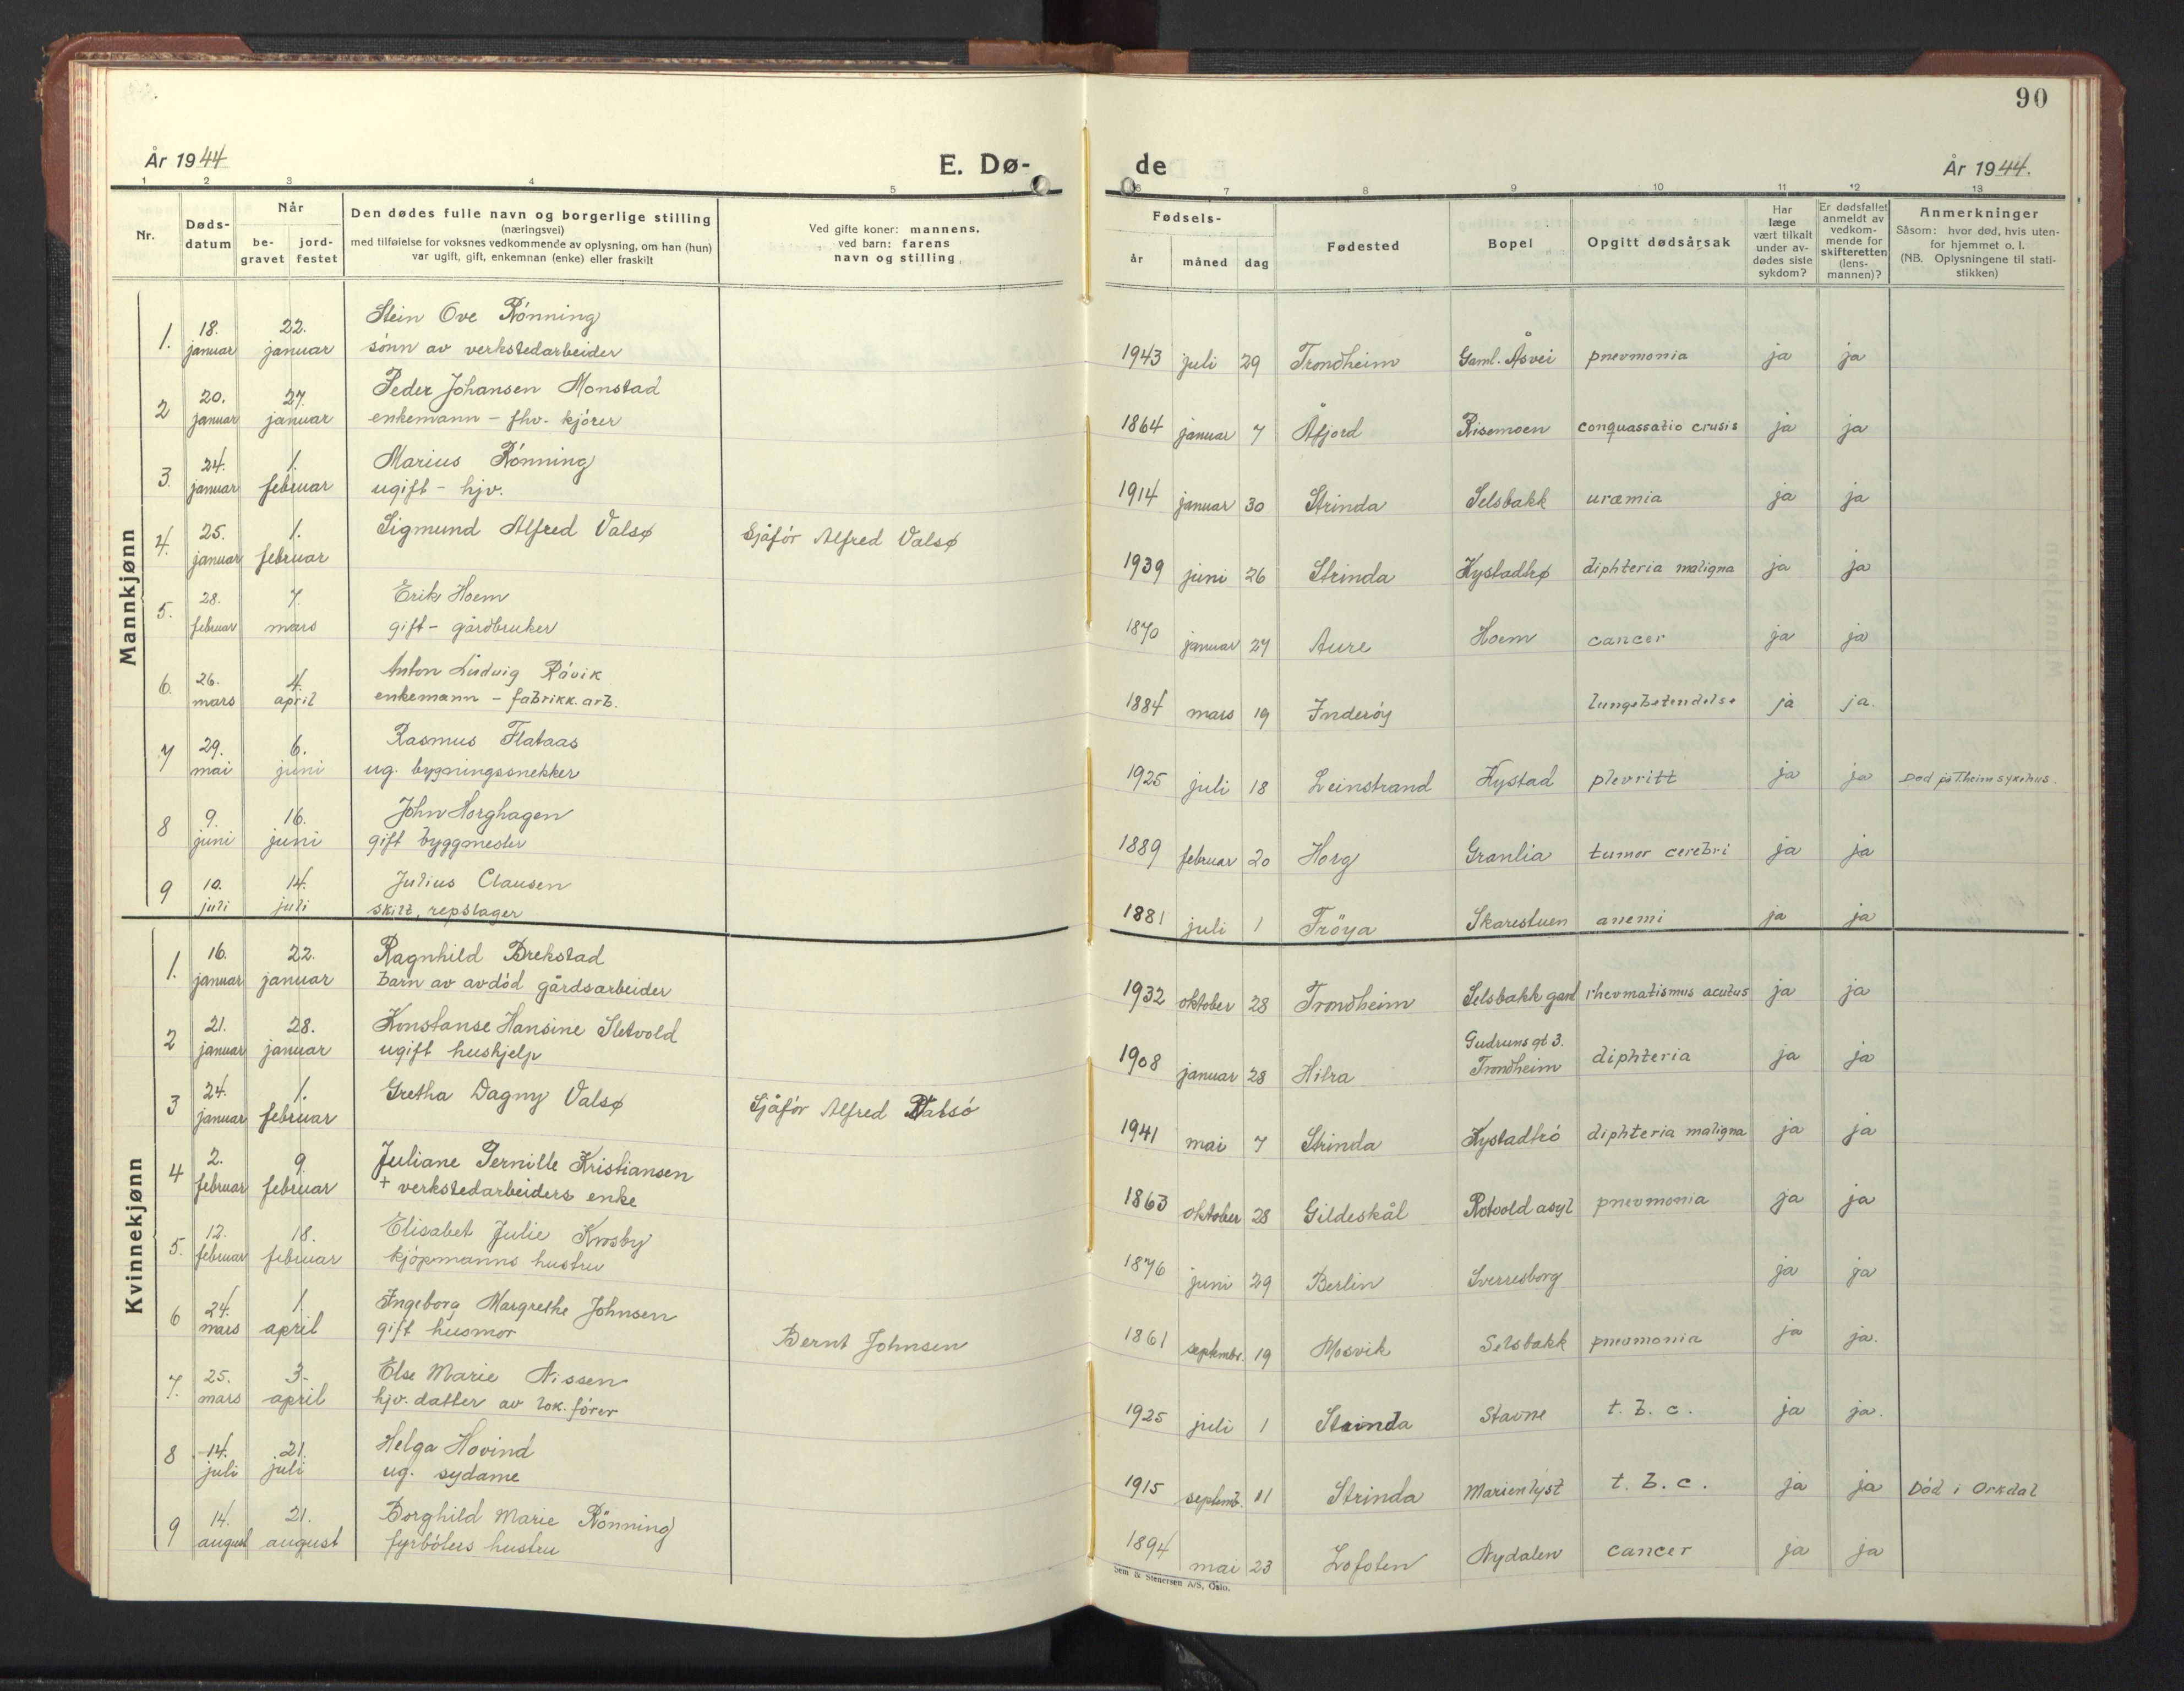 90
År 1944
E. Dø-
de
År 1944.
1 2 3 4 5
6 7 8 9 10 11 12 13
Nr.
Døds-
datum
Når
be-
gravet
jord-
festet
Den dødes fulle navn og borgerlige stilling
(næringsvei)
med tilføielse for voksnes vedkommende av oplysning, om han (hun)
var ugift, gift, enkemnan (enke) eller fraskilt
Ved gifte koner: mannens,
ved barn: farens
navn og stilling
Fødsels-
år
måned
dag
Fødested
Bopel
Opgitt dødsårsak
Har
læge
vært tilkalt
under av-
dødes siste
sykdom?
Er dødsfallet
anmeldt av
vedkom-
mende for
skifteretten
(lens-
mannen)?
Anmerkninger
Såsom: hvor død, hvis uten-
for hjemmet o. l.
(NB. Oplysningene til stati-
stikken)
Mannkjønn
1. 18. januar 22. januar Stein Ove Rönning
sönn av verkstedarbeider
1943 juli 29 Trondheim Gaml. Åsvei pnevmonia ja ja
2 20. januar 27. januar Peder Johansen Monstad
enkemann – fhv. kjörer
1864 januar 7 Åfjord Risemoen conquassatio crusis ja ja
3. 24. januar 1. februar Marius Rönning
ugift – hjv.
1914 januar 30 Strinda Selsbakk uræmia ja ja
4. 25. januar 1. februar Sigmund Alfred Valsø Sjåför Alfred Valsø
1939 juni 26 Strinda Kystadtrø diphteria maligna ja ja
5. 28. februar 7. mars Erik Hoem
gift – gårdbruker
1870 januar 27 Aure Hoem cancer ja ja
6. 26. mars 4. april Anton Ludvig Rövik
enkemann – fabrikk.arb.
1884 mars 19 Inderöy lungebetendelse ja ja.
7 29. mai 6. juni Rasmus Flataas
ug. bygningssnekker
1925 juli 18 Leinstrand Kystad plevritt ja ja Död på Theim sykehus.
8 9. juni 16. juni John Horghagen
gift byggmester
1889 februar 20 Horg Granlia tumor cerebri ja ja
9 10. juli 14. juli Julius Clausen
skilt, repslager
1881 juli 1 Fröya Skarestuen anemi ja ja
Kvinnekjønn
1. 16. januar 22. januar Ragnhild Brekstad
barn av avdöd gårdsarbeider
1932 oktober 28 Trondheim Selsbakk gard rhevmatismus acutus ja ja
2 21. januar 28. januar Konstanse Hansine Sletvold
ugift hushjelp
1908 januar 28 Hitra Gudruns gt 3.
Trondheim diphteria ja ja
3 24. januar 1. februar Gretha Dagny Valsø Sjåför Alfred Valsö
1941 mai 7 Strinda Kystadtrö diphteria maligna ja ja
4 2. februar 9. februar Juliane Pernille Kristiansen
+ verkstedarbeiders enke
1863 oktober 28 Gildeskål Rotvold asyl pnevmonia ja ja
5. 12. februar 18. februar Elisabet Julie Krosby
kjöpmanns hustru
1876 juni 29 Berlin Sverresborg ja ja
6 24. mars 1. april Ingeborg Margrethe Johnsen
gift husmor Bernt Johnsen
1861 septembr. 19 Mosvik Selsbakk pnevmonia ja ja.
7. 25. mars 3. april Else Marie Nissen
hjv. datter av lok. förer
1925 juli 1 Strinda Stavne t. b. c. ja ja.
8 14. juli 21. juli Helga Hovind
ug. sydame
1915 septemb. 11 Strinda Marienlyst t. b. c. ja ja Död i Orkdal
9 14. august 21. august Borghild Marie Rönning
fyrböters hustru
1894 mai 23 Lofoten Nydalen cancer ja ja
Sem & Stenersen A/S, Oslo.